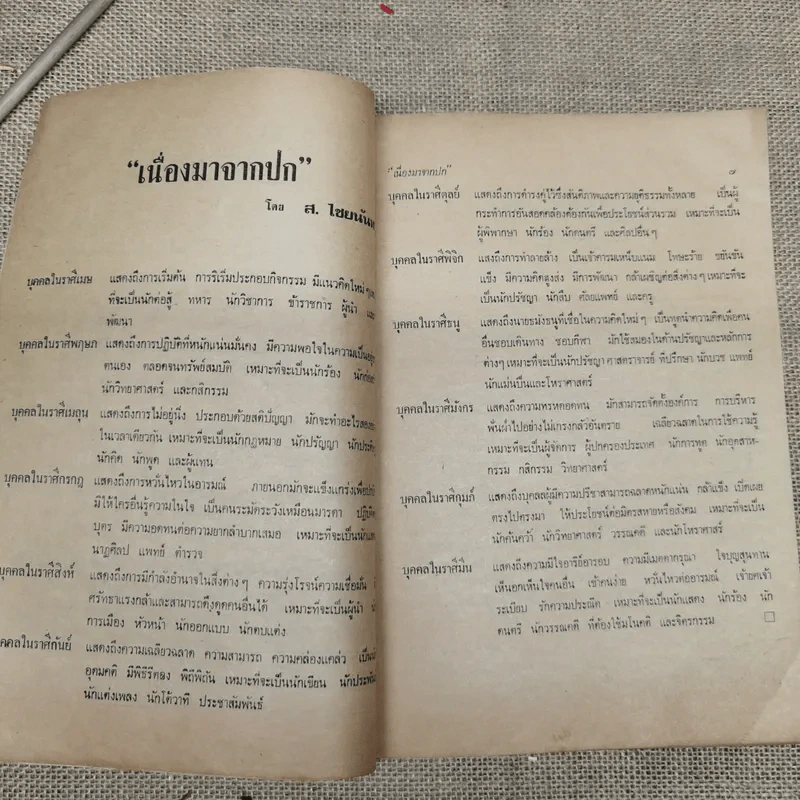 “เนื่องมาจากปก”
โดย ส. ไชยนันท
บุคคลในราศีเมษ แสดงถึงการเริ่มต้น การริเริ่มประกอบกิจกรรม มีแนวคิดใหม่
ที่จะเป็นนักต่อสู้ ทหาร นักวิชาการ ข้าราชการ ผู้นำ และ
พัฒนา
บุคคลในราศีพฤษภ แสดงถึงการปฏิบัติที่หนักแน่นมั่นคง มีความพอใจในความเป็นอยู่
ตนเอง ตลอดจนทรัพย์สมบัติ เหมาะที่จะเป็นนักร้อง
นักวิทยาศาสตร์ และกสิกรรม
บุคคลในราศีเมถุน แสดงถึงการไม่อยู่นิ่ง ประกอบด้วยสติปัญญา มักจะทำอะไรสอง
ในเวลาเดียวกัน เหมาะที่จะเป็นนักกฎหมาย นักปรัญญา นักประดิษ
นักคิด นักพูด และผู้แทน
บุคคลในราศีกรกฎ แสดงถึงการหวั่นไหวในอารมณ์ ภายนอกมักจะแข็งแกร่งเพื่อ
มิให้ใครอื่นรู้ความในใจ เป็นคนระมัดระวังเหมือนมารดา ปฏิบัติ
บุตร มีความอดทนต่อความยากลำบากเสมอ เหมาะที่จะเป็นนักแ
นาฏศิลป แพทย์ ตำรวจ
บุคคลในราศีสิงห์ แสดงถึงการมีกำลังอำนาจในสิ่งต่างๆ ความรุ่งโรจน์ความเชื่อมั่น
ศรัทธาแรงกล้าและสามารถดึงดูดคนอื่นได้ เหมาะที่จะเป็นผู้นำ
การเมือง หัวหน้า นักออกแบบ นักตบแต่ง
บุคคลในราศีกันย์ แสดงถึงความเฉลียวฉลาด ความสามารถ ความคล่องแคล่ว เป็น
อุดมคติ มีพิธีรีตอง พิถีพิถัน เหมาะที่จะเป็นนักเขียน นักประพัน
นักแต่งเพลง นักโต้วาที ประชาสัมพันธ์
“เนื่องมาจากปก” ๗
บุคคลในราศีตุลย์ แสดงถึงการดำรงคู่ไว้ซึ่งสันติภาพและความยุติธรรมทั้งหลาย เป็นผู้
กระทำการอันสอดคล้องต้องกันเพื่อประโยชน์ส่วนรวม เหมาะที่จะเป็น
ผู้พิพากษา นักร้อง นักดนตรี และศิลปอื่นๆ
บุคคลในราศีพิจิก แสดงถึงการทำลายล้าง เป็นเจ้าคารมเหน็บแนม โทษะร้าย ขยันขัน
แข็ง มีความคิดสูงส่ง มีการพัฒนา กล้าเผชิญต่อสิ่งต่างๆ เหมาะที่จะ
เป็นนักปรัชญา นักสืบ ศัลยแพทย์ และครู
บุคคลในราศีธนู แสดงถึงนายธมังธนูที่เชื่อในความคิดใหม่ๆ เป็นทูตนำความคิดเพื่อคน
อื่นชอบเดินทาง ชอบกีฬา มักใช้สมองในด้านปรัชญาและหลักการ
ต่างๆ เหมาะที่จะเป็นนักปรัชญา ศาสตราจารย์ ที่ปรึกษา นักบวช แพทย์
นักแม่นปืนและโหราศาสตร์
บุคคลในราศีมังกร แสดงถึงความทรหดอดทน มักสามารถจัดตั้งองค์การ การบริหาร
พ้นฝ่าไปอย่างไม่เกรงกลัวอันตราย เฉลียวฉลาดในการใช้ความรู้
เหมาะที่จะเป็นผู้จัดการ ผู้ปกครองประเทศ นักการทูต นักอุตสาห-
กรรม กสิกรรม วิทยาศาสตร์
บุคคลในราศีกุมภ์ แสดงถึงบุคลลผู้มีความปรีชาสามารถฉลาดหนักแน่น กล้าแข็ง เปิดเผย
ตรงไปตรงมา ให้ประโยชน์ต่อมิตรสหายหรือสังคม เหมาะที่จะเป็น
นักค้นคว้า นักวิทยาศาสตร์ วรรณคดี และนักโหราศาสร์
บุคคลในราศีมีน แสดงถึงความมีใจอารีย์อารอบ ความมีเมตตากรุณา ใจบุญสุนทาน
เห็นอกเห็นใจคนอื่น เข้าคนง่าย หวั่นไหวต่ออารมณ์ เจ้ายศเจ้า
ระเบียบ รักความประณีต เหมาะที่จะเป็นนักแสดง นักร้อง นัก
ดนตรี นักวรรณคดี ที่ต้องใช้มโนคติ และจิตรกรรม